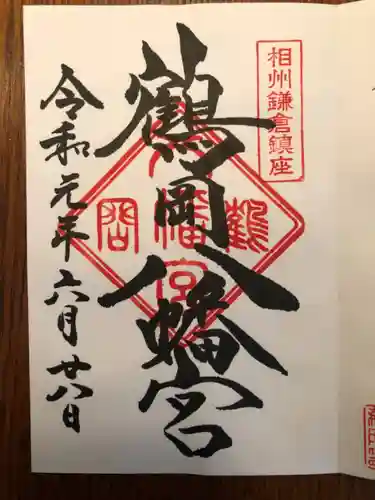 相州鎌倉鎮座
鶴岡八幡宮
令和元年六月廿八日